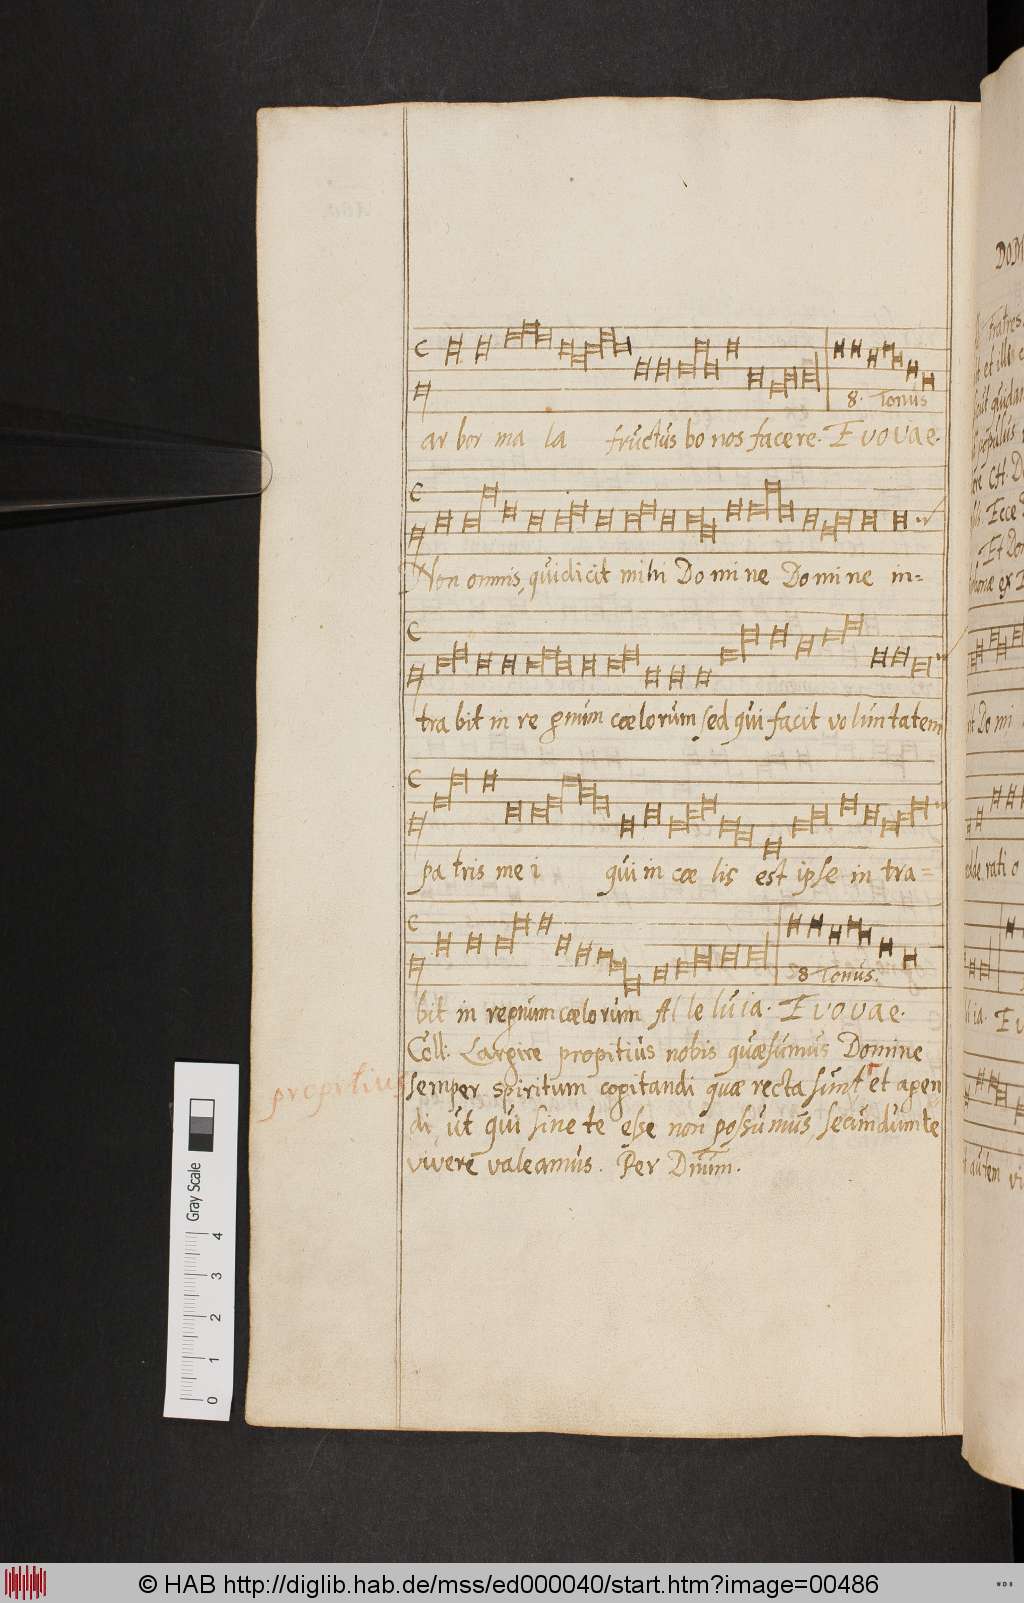 ar bor ma la fructus bo nos facere. Evovae.
8. Tonus
Non omnis, qui dicit mihi Do mi ne Do mi ne in=
tra bit in re gnum coelorum sed qui facit vo lun tatem
pa tris me i qui in coe lis est ipse in tra=
bit in regnum coelo rum Al le lu ia. Evovae.
8 Tonus.
Coll: Largire propitius nobis quaesumus Domine
propitius
semper spiritum cogitandi quae recta sunt et agen
di, ut qui sine te esse non possumus secundum te
vivere valeamus. Per Dnum.
DOM
fratres
Et Do
Do mi
rati o
autem vi
Gray Scale
4
3
2
1
0
© HAB http://diglib.hab.de/mss/ed000040/start.htm?image=00486